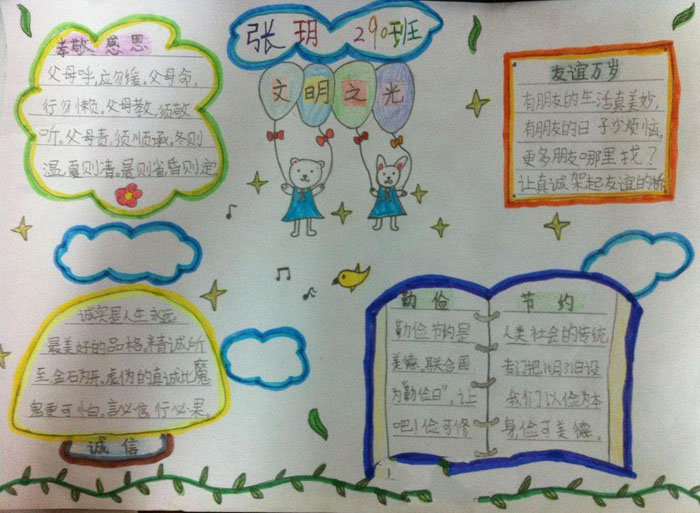 张玥 290班
文明之光
孝敬感恩
父母呼,应勿缓。父母命,
行勿懒。父母教,须敬
听。父母责,须顺承。冬则
温,夏则凊,晨则省,昏则定
友谊万岁
有朋友的生活真美妙,
有朋友的日子少烦恼,
更多朋友哪里找?
让真诚架起友谊的桥
诚实是人生永远
最美好的品格,精诚所
至金石为开,虚伪的真诚比魔
鬼更可怕。言必信行必果。
诚信
勤俭
勤俭节约是
美德。联合国
为"勤俭日"。让
吧!俭可修
节约
人类社会的传统
专门把10月31日设
我们以俭为本
身俭可美德。